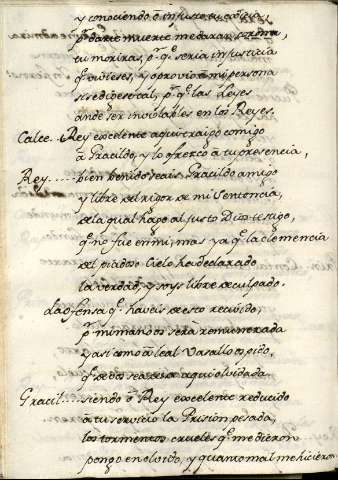 y conociendo ô injusto tu
pª darte muerte me daran
tu moriras, pr. q̃ seria injusticia
q̃ vivieses, y oprovio â mi persona
si se dijese tal, pr. q̃ las Leyes
an de ser inviolables en los Reyes.
Calce. Rey excelente aqui traigo comigo
â Gracildo, y lo ofrezco â tu presencia,
Rey.... bien benido seais, Gracildo amigo
y libre del rigor de mi Sentencia,
de la qual hago al justo Dios testigo,
q̃ no fue en mi, mas ya q̃ la clemencia
del piadoso Cielo ha declarado
la verdad, y soys libre de culpado.
La ofensa q̃ haveis de esto recivido,
pr. mi mano os sera remunerada
y asi como â leal Vasallo os pido,
q̃ de vos sea aqui olvidada.
Gracil.... siendo ô Rey excelente reducido
â tu servicio la Prision pesada,
los tormentos crueles q̃ me dieron
pongo en olvido, y quanto mal me hicieron